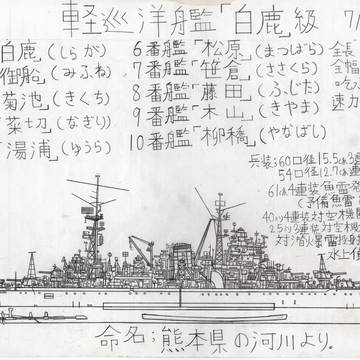 軽巡洋艦「白鹿」級 7
白鹿」(しらが) 6番艦「松原」(まつばら) 全長
御船」(みふね) 7番艦「笹倉」(ささくら) 全幅
菊池」(きくち) 8番艦「藤田」(ふじた) 吃水
菜切」(なぎり) 9番艦「木山」(きやま) 速力
湯浦」(ゆうら) 10番艦「柳橋」(やなばし)
兵装;60口径15.5㎝3連
54口径12.7㎝連
61㎝4連装魚雷発
(予備魚雷
40㍉4連装対空機
25㍉3連装対空機
対潜火爆雷投射
水上偵
命名;熊本県の河川より。